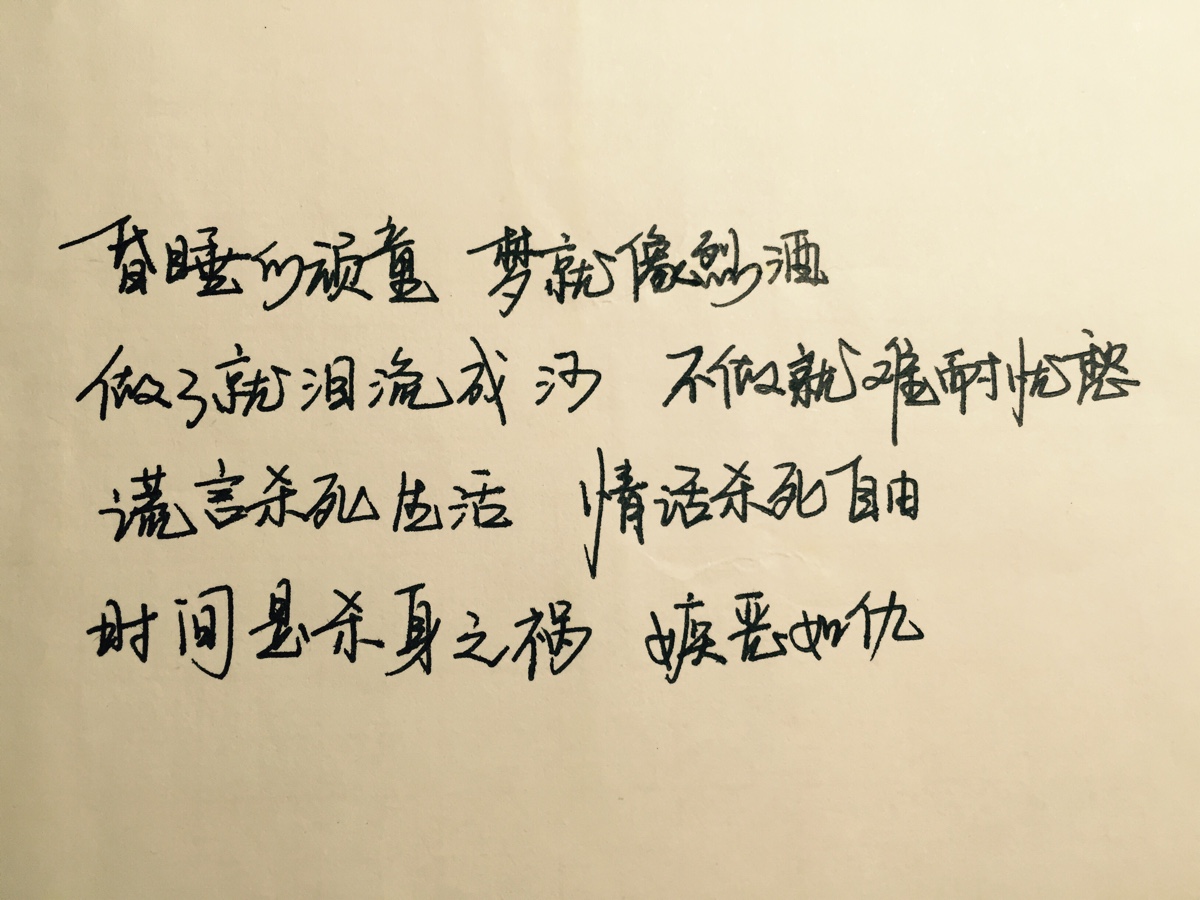 昏睡的顽童 梦就像烈酒
做了就泪流成河 不做就难耐忧愁
谎言杀死生活 情话杀死自由
时间是杀身之祸 嫉恶如仇